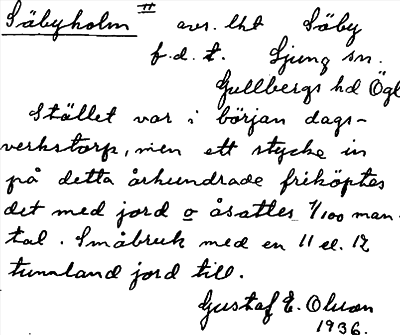 Säbyholm II avs. lht Säby
f.d.t. Ljung sn.
Gullbergs hd Ögl
Stället var i början dags-
verkstorp, men ett stycke in
på detta århundrade friköptes
det med jord o åsattes 1/100 man-
tal. Småbruk med en 11 el. 12
tunnland jord till.
Gustaf E. Olsson
1936.